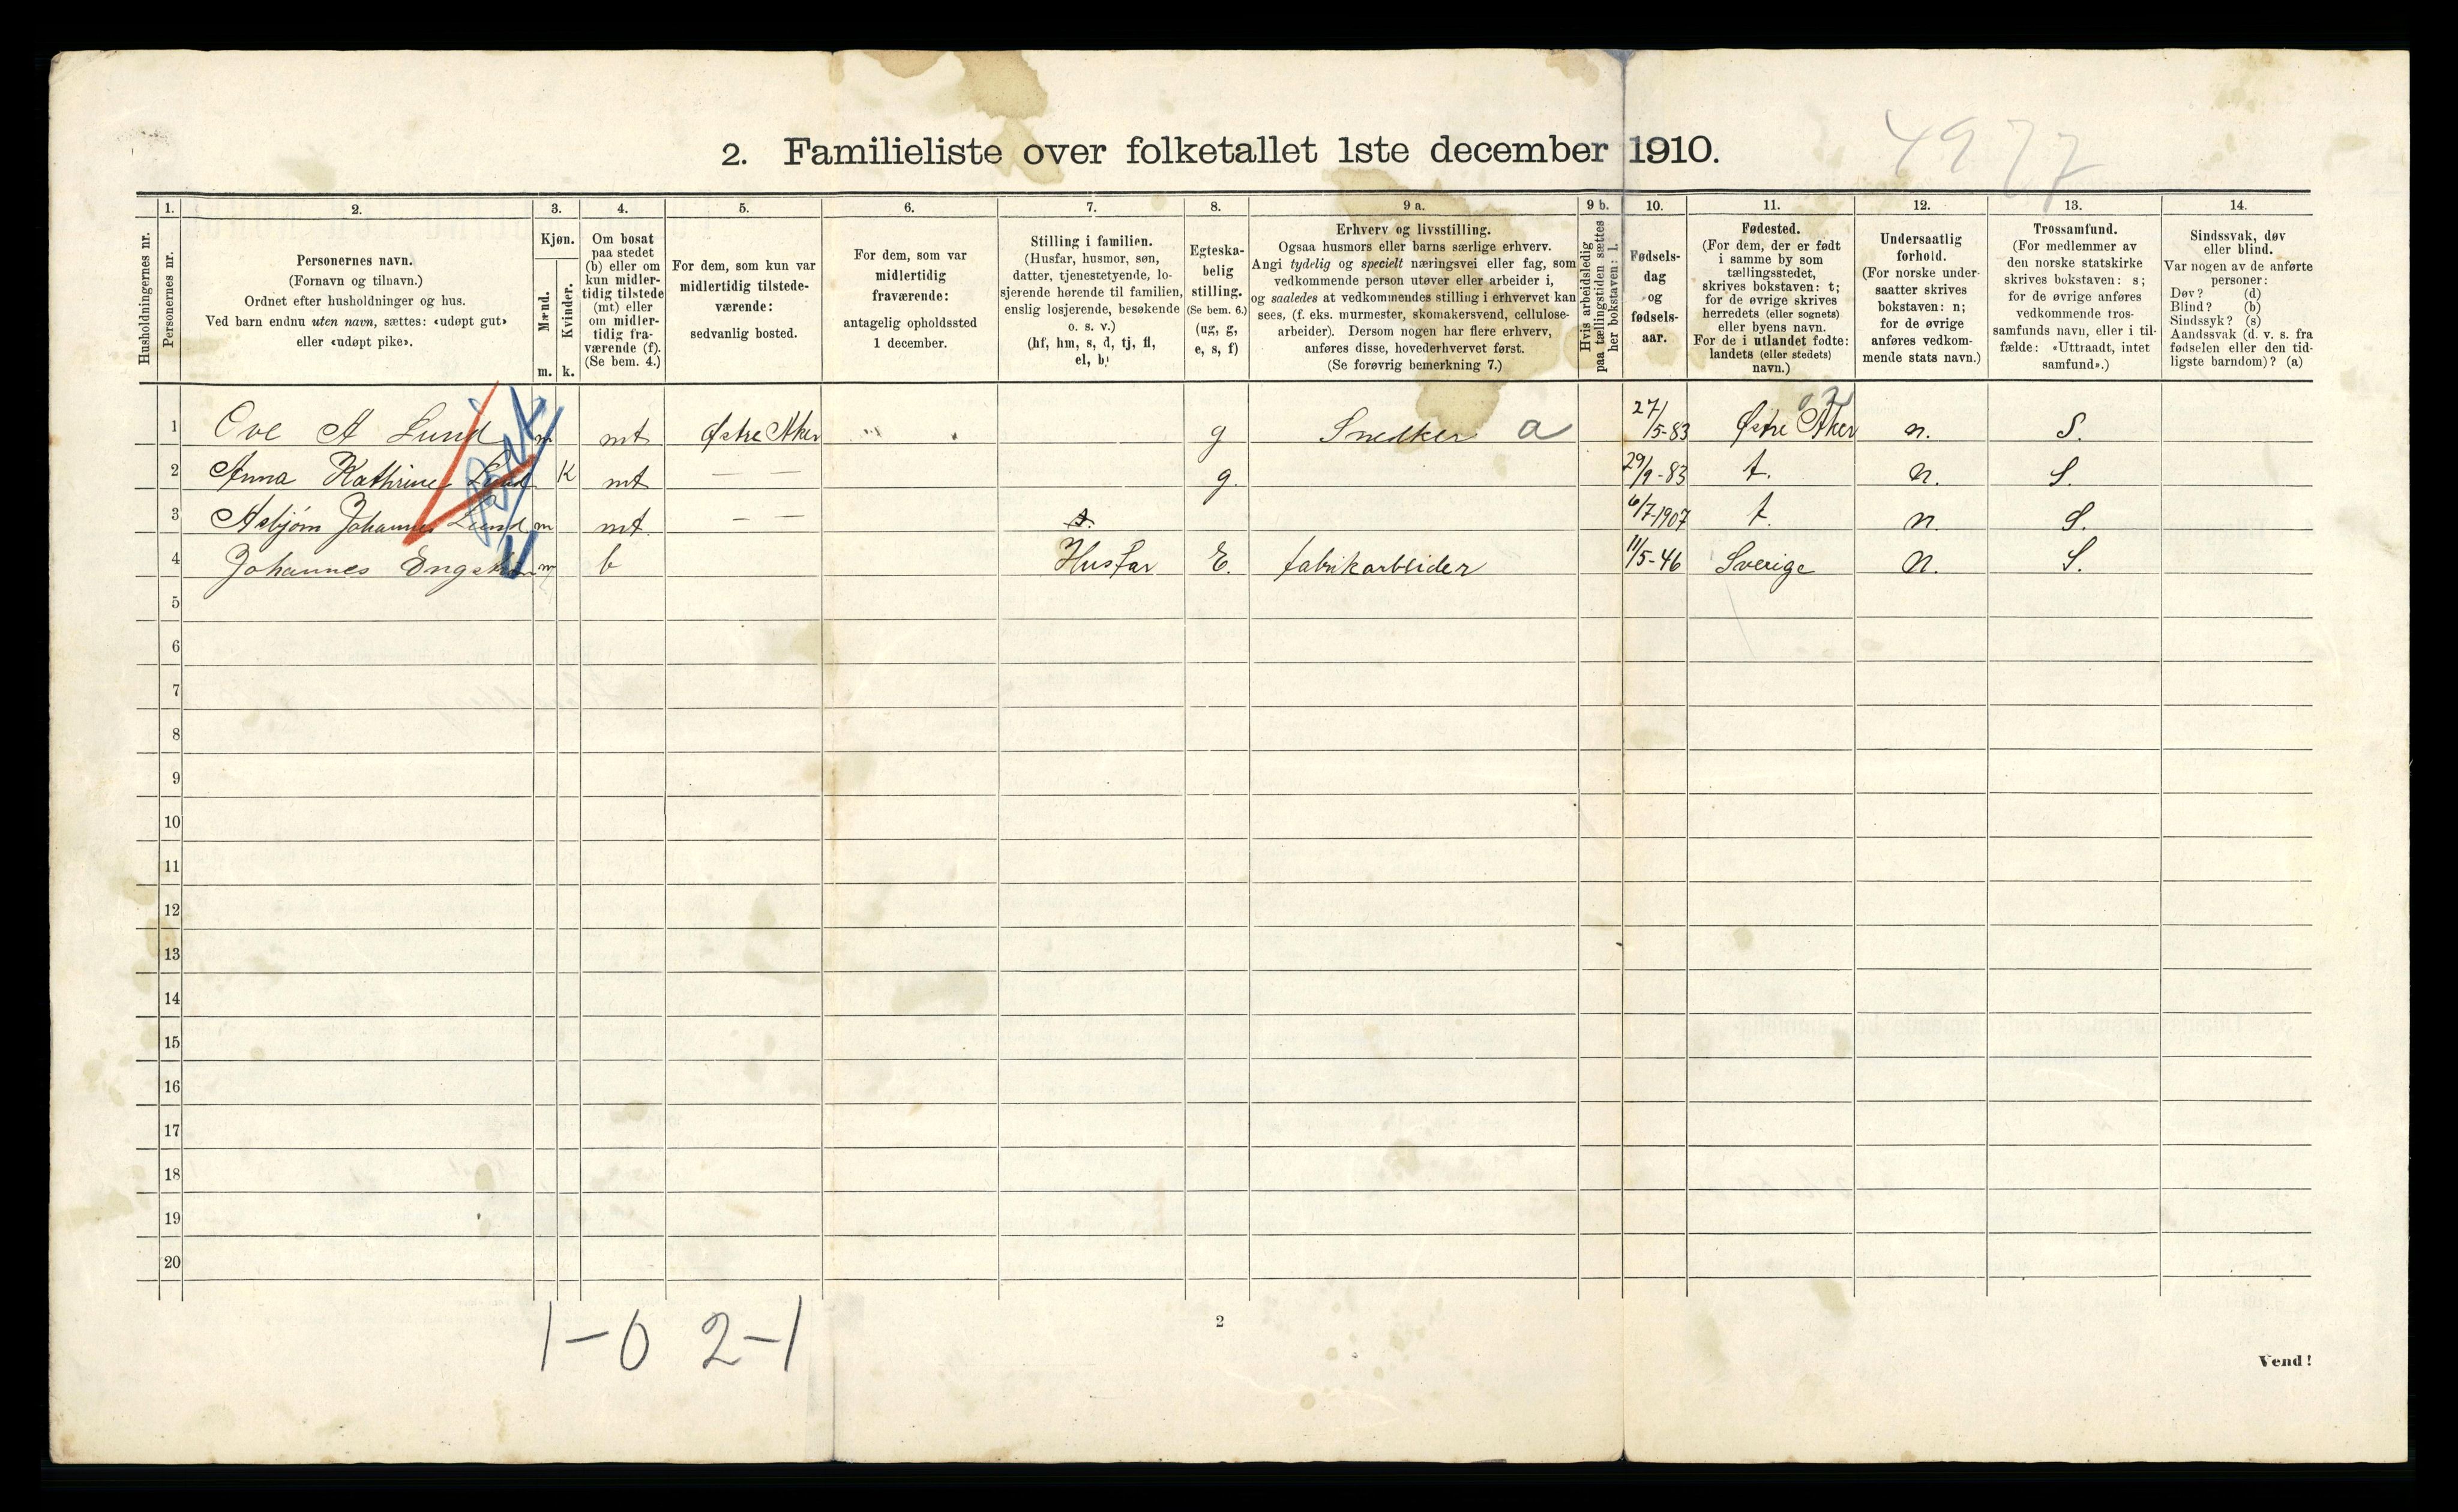 4977
2. Familieliste over folketallet 1ste december 1910.
1. 2. 3. 4. 5. 6. 7. 8. 9 a. 9 b. 10. 11. 12. 13. 14.
Husholdningernes nr.
Personernes nr.
Personernes navn.
(Fornavn og tilnavn.)
Ordnet efter husholdninger og hus.
Ved barn endnu uten navn, sættes: «udøpt gut»
eller «udøpt pike».
Kjøn.
Mænd.
Kvinder.
m. k.
Om bosat
paa stedet
(b) eller om
kun midler-
tidig tilstede
(mt) eller
om midler-
tidig fra-
værende (f).
(Se bem. 4.)
For dem, som kun var
midlertidig tilstede-
værende:
sedvanlig bosted.
For dem, som var
midlertidig
fraværende:
antagelig opholdssted
1 december.
Stilling i familien.
(Husfar, husmor, søn,
datter, tjenestetyende, lo-
sjerende hørende til familien,
enslig losjerende, besøkende
o. s. v.)
(hf, hm, s, d, tj, fl,
el, b)
Egteska-
belig
stilling.
(Se bem. 6.)
(ug, g,
e, s, f)
Erhverv og livsstilling.
Ogsaa husmors eller barns særlige erhverv.
Angi tydelig og specielt næringsvei eller fag, som
vedkommende person utøver eller arbeider i,
og saaledes at vedkommendes stilling i erhvervet kan
sees, (f. eks. murmester, skomakersvend, cellulose-
arbeider). Dersom nogen har flere erhverv,
anføres disse, hovederhvervet først.
(Se forøvrig bemerkning 7.)
Hvis arbeidsledig
paa tællingstiden sættes
her bokstaven: l.
Fødsels-
dag
og
fødsels-
aar.
Fødested.
(For dem, der er født
i samme by som
tællingsstedet,
skrives bokstaven: t;
for de øvrige skrives
herredets (eller sognets)
eller byens navn.
For de i utlandet fødte:
landets (eller stedets)
navn.)
Undersaatlig
forhold.
(For norske under-
saatter skrives
bokstaven: n;
for de øvrige
anføres vedkom-
mende stats navn.)
Trossamfund.
(For medlemmer av
den norske statskirke
skrives bokstaven: s;
for de øvrige anføres
vedkommende tros-
samfunds navn, eller i til-
fælde: «Uttraadt, intet
samfund».)
Sindssvak, døv
eller blind.
Var nogen av de anførte
personer:
Døv? (d)
Blind? (b)
Sindssyk? (s)
Aandssvak (d. v. s. fra
fødselen eller den tid-
ligste barndom)? (a)
1 Ove A Lund m mt Østre Aker g Snedker a 27/5-83 Østre Aker n. S.
2 Anna Kathrine Lund K mt — — g. 29/9-83 t. n. S.
3 Asbjørn Johannes Lund m mt. — — s. 6/7-1907 t. n. S.
4 Johannes m b Husfar E. fabrikarbeider 11/5-46 Sverige n. S.
5
6
7
8
9
10
11
12
13
14
15
16
17
18
19
20
1-0 2-1
2
Vend!